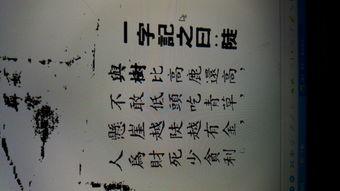 一字記之曰:陡
與樹比高鹿還高，
不敢低頭吃青草，
懸崖越陡越有金，
人為財死少貪利